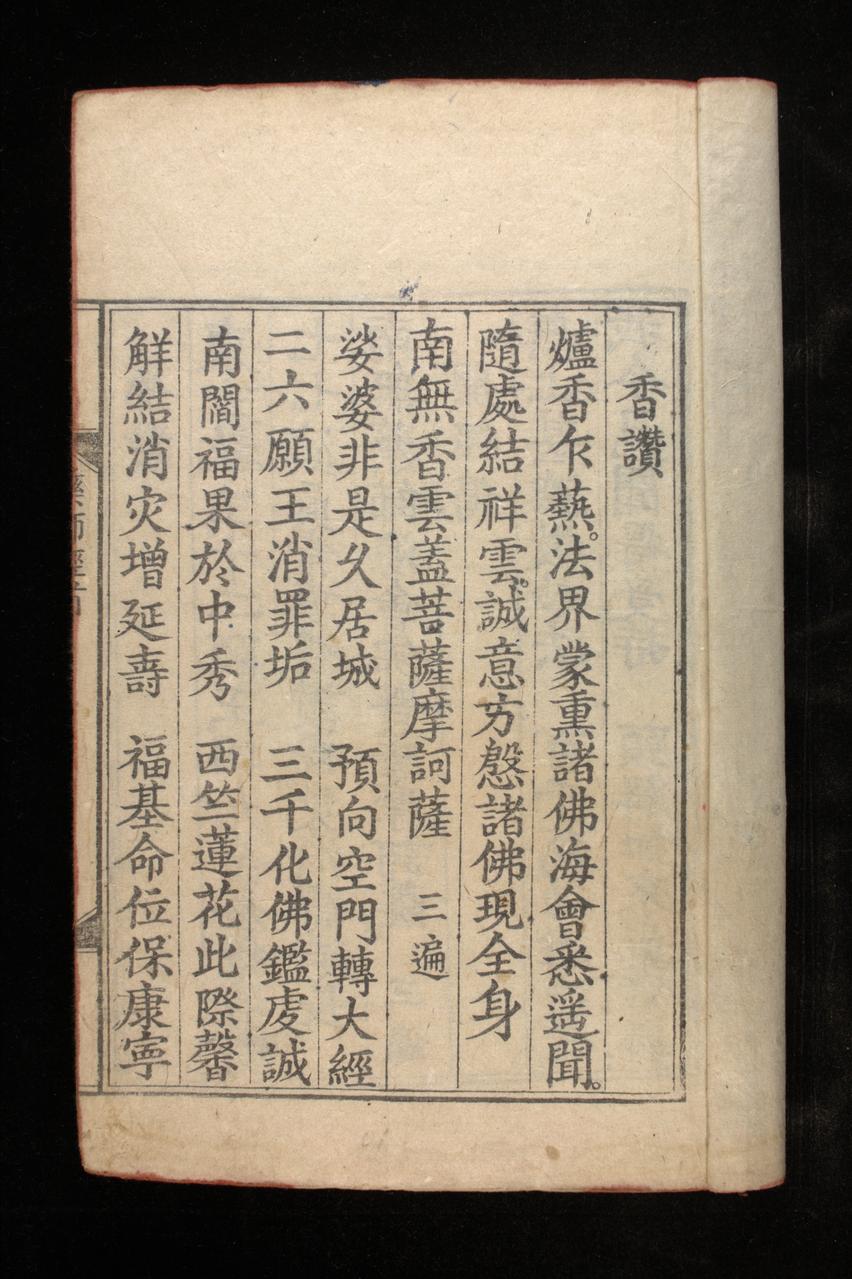 香讚
爐香乍爇。法界蒙熏諸佛海會悉遥聞。
隨處結祥雲。誠意方慇諸佛現全身
南無香雲蓋菩薩摩訶薩 三遍
娑婆非是久居城 預向空門轉大經
二六願王消罪垢 三千化佛鑑虔誠
南閻福果於中秀 西竺蓮花此際馨
觧結消灾增延壽 福基命位保康寧
藥師經